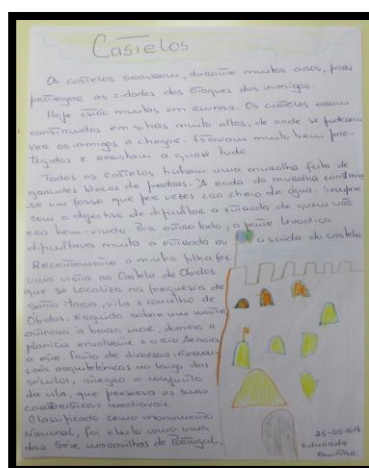 Castelos
Os castelos serviram, durante muitos anos, para
proteger as cidades dos ataques dos inimigos.
Hoje estão muitos em ruínas. Os castelos eram
construídos em sítios muito altos, de onde se pudessem
ver os inimigos a chegar. Estavam muito bem pro-
tegidos e resistiam a quase tudo.
Todos os castelos tinham uma muralha feita de
grandes blocos de pedras. À roda da muralha
se um fosso que por vezes era cheio de água. Sempre
com o objectivo de dificultar a entrada de quem não
era bem-vindo. Por outro lado, a ponte levadiça
dificultava muito a entrada ou a saída do castelo.
Recentemente a minha filha fez
uma visita ao Castelo de Óbidos
que se localiza na freguesia de
Santa Maria, vila e concelho de
Óbidos. Erguido sobre um monte
a beira mar, domina a
planície envolvente e o rio Arnoia
a este. Fruto de diversas
arquitetónicas ao longo dos
séculos, o conjunto
da vila, que preserva as suas
características medievais.
Classificado como monumento
Nacional, foi eleito como uma
das Sete maravilhas de Portugal.
Eduarda